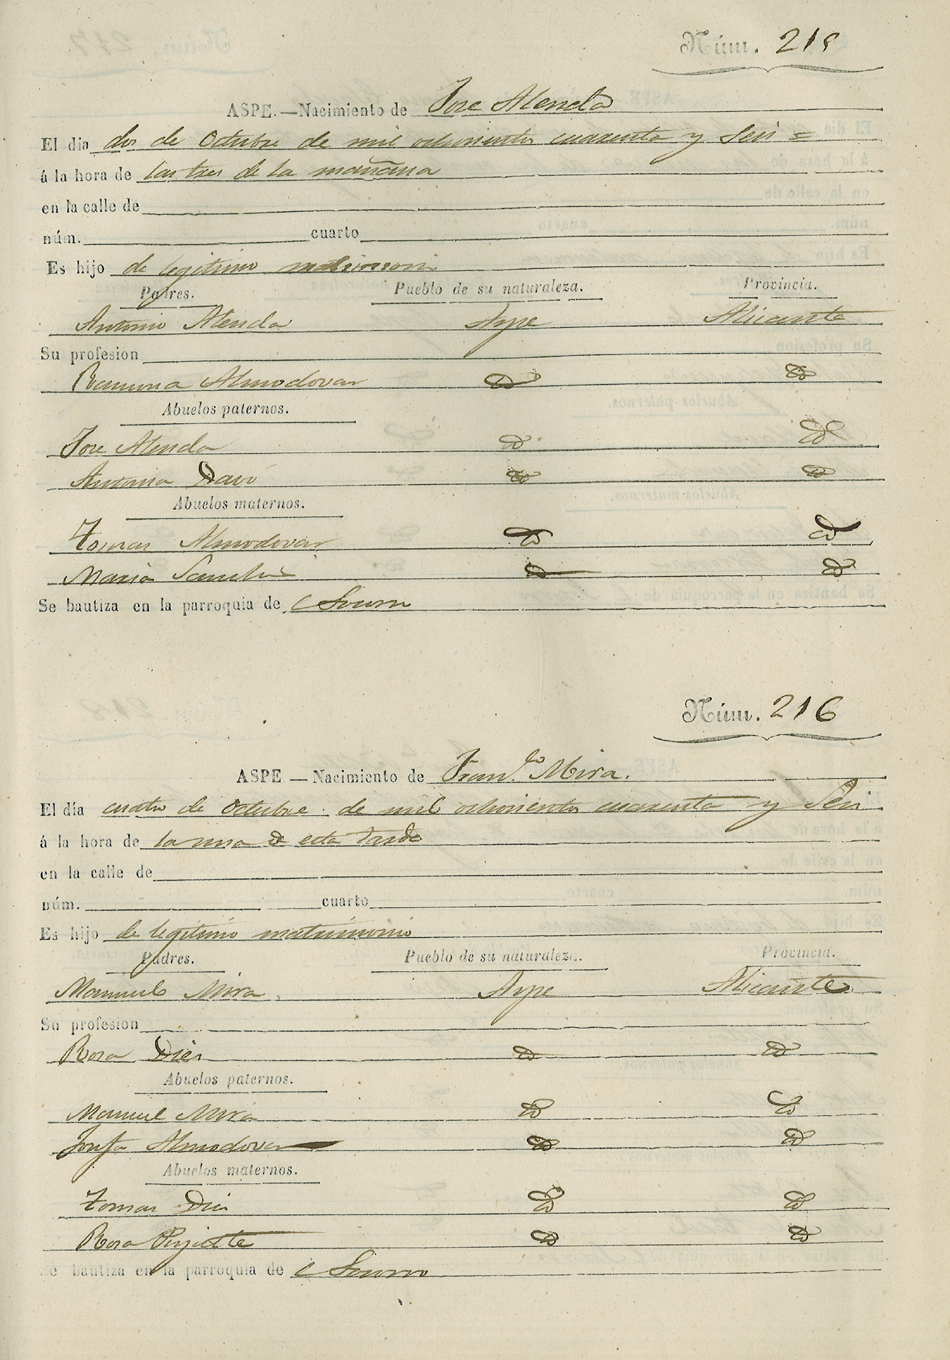 Núm. 215
ASPE.—Nacimiento de Jose Alenda
El dia dos de Octubre de mil ochocientos cuarenta y Seis =
á la hora de las tres de la mañana
en la calle de
núm. cuarto
Es hijo de legitimo matrimoni
Padres. Pueblo de su naturaleza. Provincia.
Antonio Alenda Aspe Alicante
Su profesion
Ramona Almodovar
Abuelos paternos.
Jose Alenda
Antonia Davó
Abuelos maternos.
Tomas Almodovar
Maria Sanchis
Se bautiza en la parroquia de
Núm. 216
ASPE — Nacimiento de Fran.co Mira.
El día cuatro de Octubre de mil ochocientos cuarenta y Seis
á la hora de la una de esta tarde
en la calle de
núm. cuarto
Es hijo de legitimo matrimonio
Padres. Pueblo de su naturaleza. Provincia.
Manuel Mira Aspe Alicante
Su profesion
Rosa Dies
Abuelos paternos.
Manuel Mira
Josefa Almodovar
Abuelos maternos.
Tomas Dies
Rosa
Se bautiza en la parroquia de